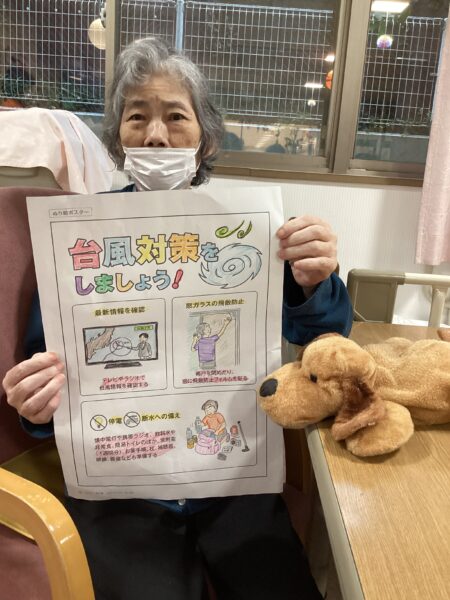 ぬり絵ポスター
台風対策を
しましょう!
最新情報を確認
テレビやラジオで
台風情報を確認する
窓ガラスの飛散防止
雨戸を閉めたり、
窓に飛散防止フィルムを貼る
停電 断水への備え
懐中電灯や携帯ラジオ、飲料水や
非常食、簡易トイレのほか、常用薬
(1週間分)、お薬手帳、杖、補聴器、
眼鏡、義歯なども準備する